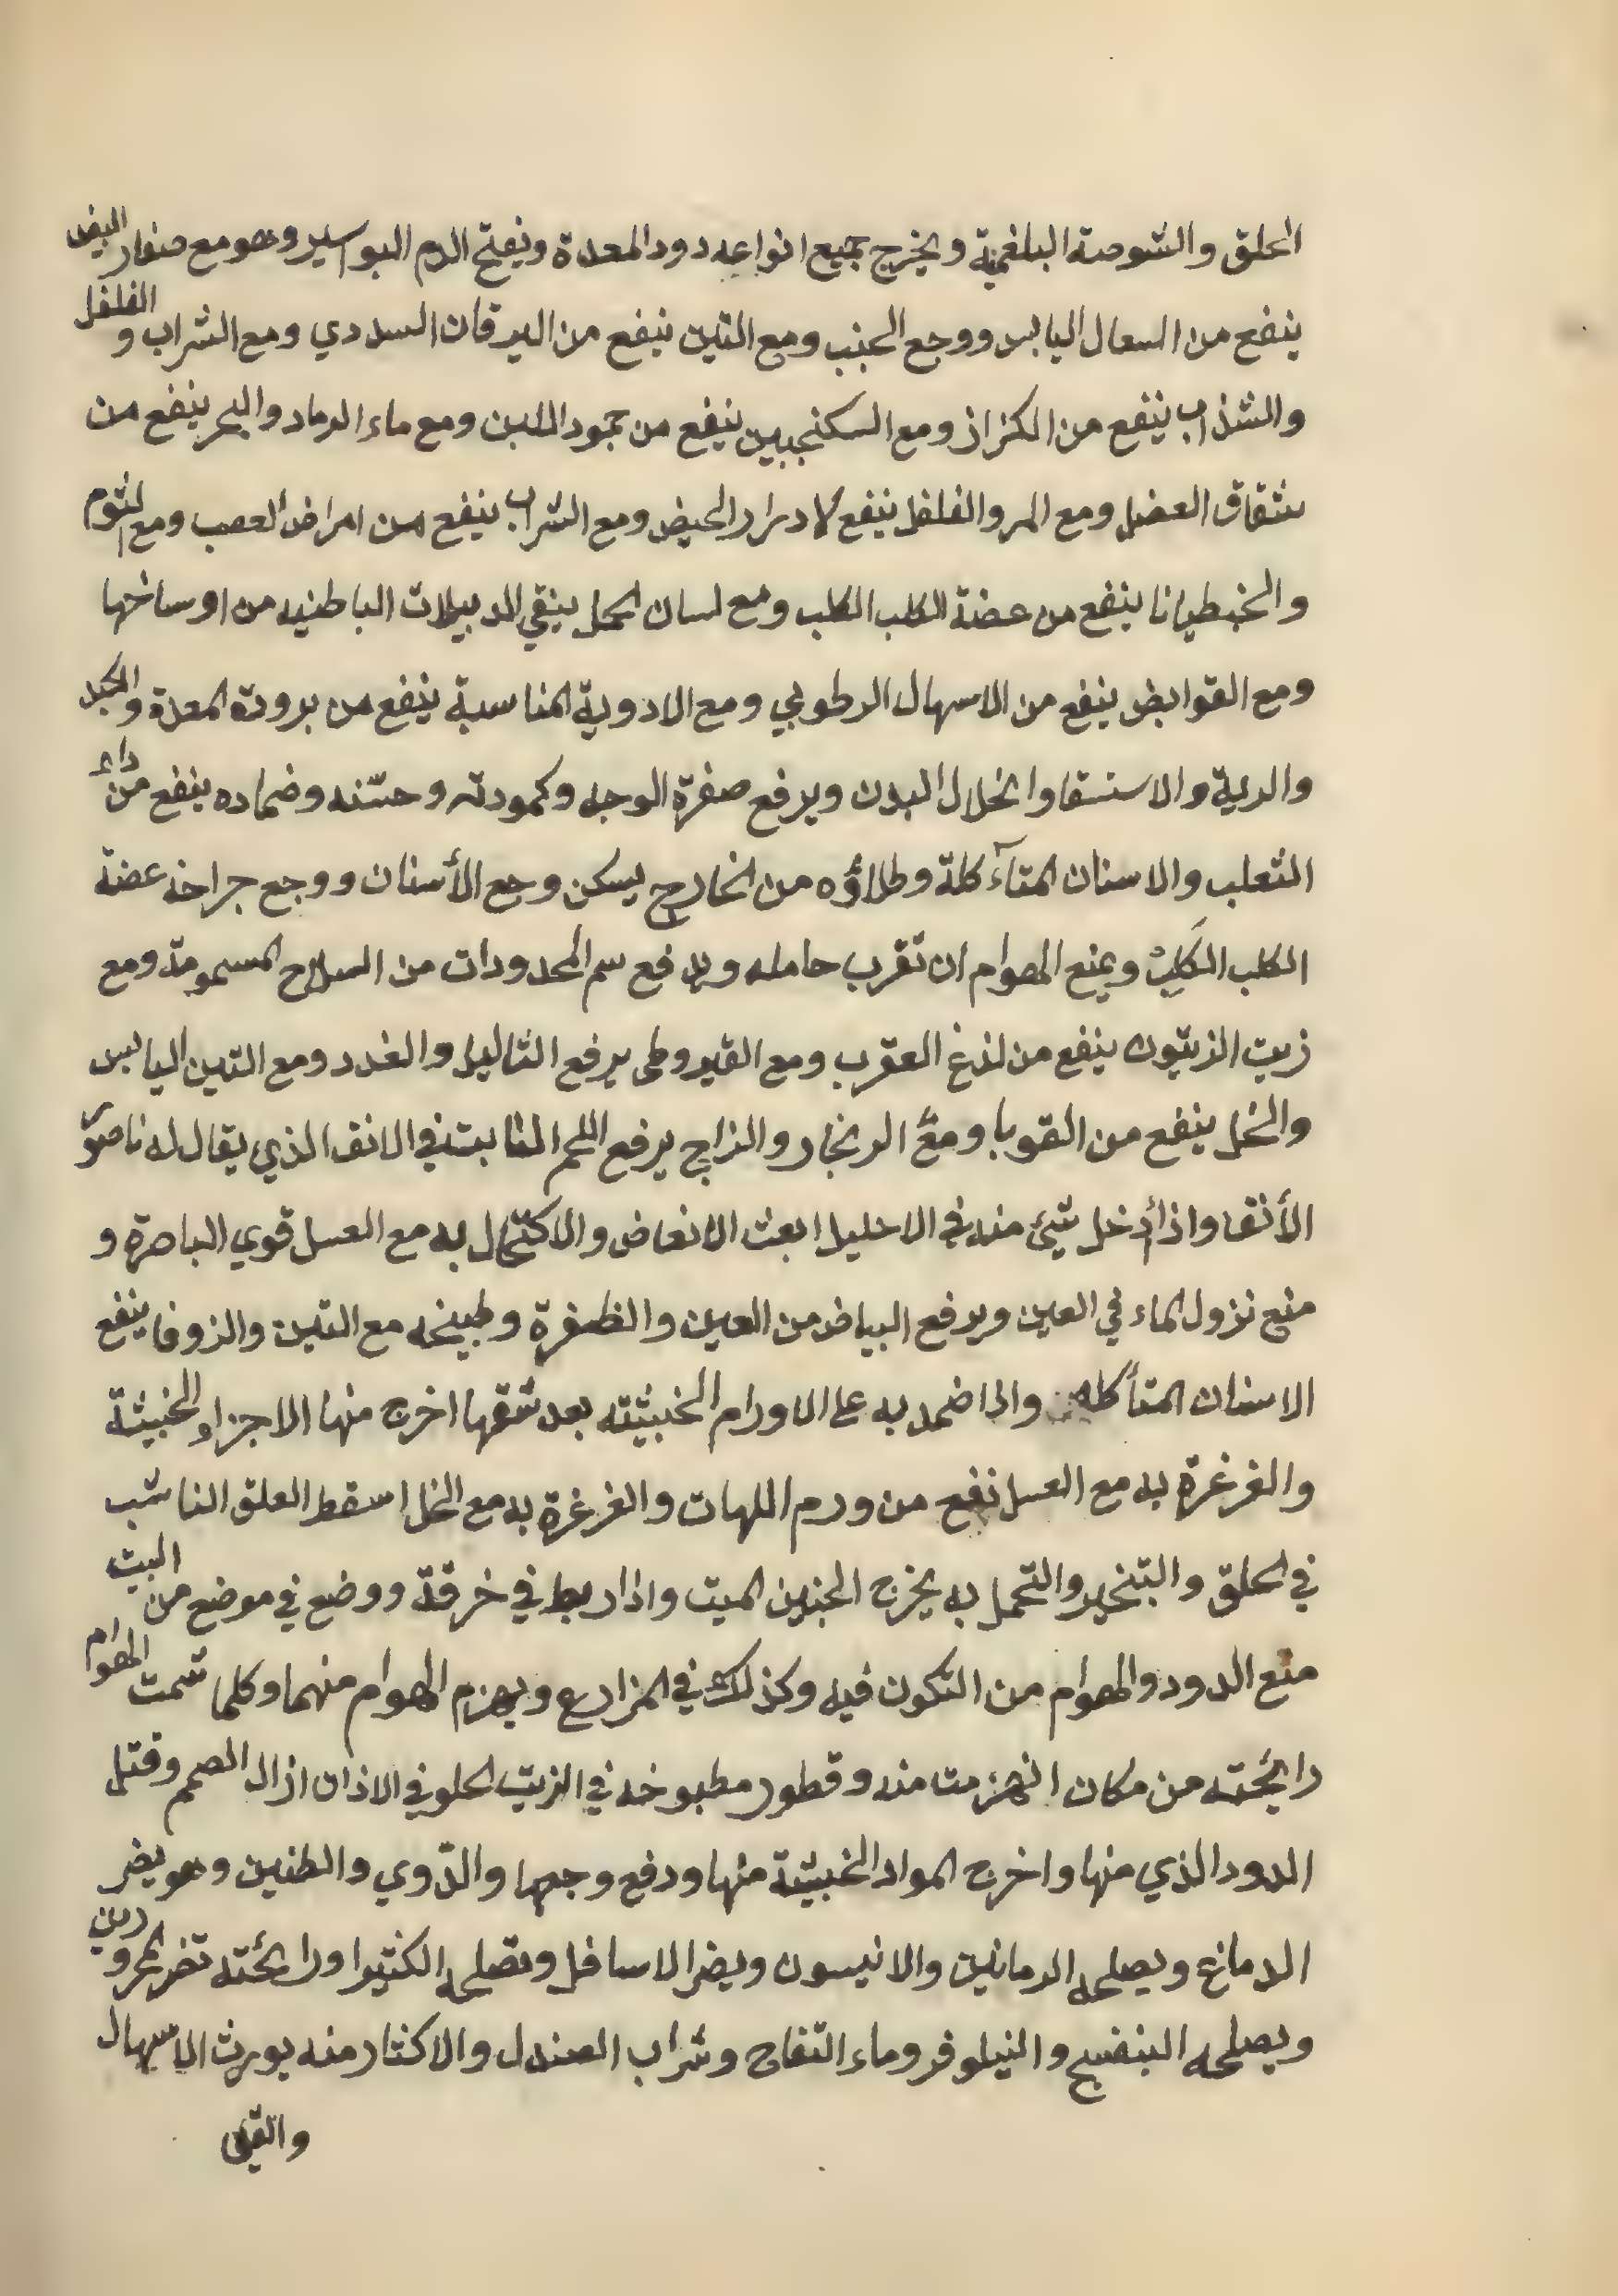 الحلق والشوصة البلغمية ويخرج جميع انواعه دود المعدة ويفتح الدم البواسير وهو مع صفار البيض
ينفع من السعال اليابس ووجع الجنب ومع التين ينفع من اليرقان السددي ومع الشراب و الفلفل
والشذاب ينفع من الكزاز ومع السكنجبين ينفع من جمود اللبن ومع ماء الرماد والبحر ينفع من
شقاق العضل ومع المر والفلفل ينفع لادرار الحيض ومع الشراب ينفع من امراض العصب ومع الثوم
والخبطيانا ينفع من عضة الكلب الكلب ومع لسان الحمل ينقي الدبيلات الباطنيه من اوساخها
ومع القوابض ينفع من الاسهال الرطوبي ومع الادوية المناسبة ينفع من برودة المعدة والكبد
والرية والاستسقا وانحلال البدن ويرفع صفرة الوجه وكمودته وحسّنه وضماده ينفع من داء
الثعلب والاسنان المتآكلة وطلاؤه من الخارج يسكن وجع الأسنان ووجع جراحة عضة
الكلب الكَلِبْ ويمنع الهوام ان تقرب حامله ويدفع سم المحدودات من السلاح المسمومة ومع
زيت الزيتون ينفع من لذغ العقرب ومع القيروطي يرفع الثاليل والغدد ومع التين اليابس
والخل ينفع من القوبا ومع الزنجار والزاج يرفع اللحم النابت في الانف الذي يقال له ناصور
الأنف واذا أدخل شيئ منه في الاحليل ابعث الانعاض والاكتحال به مع العسل قوي الباصرة و
منع نزول الماء في العين ويرفع البياض من العين والظفرة وطبيخه مع التين والزوفا ينفع
الاسنان المتأكله واذا ضمد به على الاورام الخبيثته بعد شقها اخرج منها الاجزاء الخبيثة
والغرغرة به مع العسل نفع من ورم اللهات والغرغرة به مع الخل اسقط العلق الناشب
في الحلق والتبخير والتحمل به يخرج الجنين الميت واذا ربط في خرقة ووضع في موضع من البيت
منع الدود والهوام من التكون فيه وكذلك في المزارع ويهزم الهوام منهما وكلما شمت الهوام
رائحته من مكان انهزمت منه وقطور مطبوخه في الزيت الحلو في الاذان ازال الصمم وقتل
الدود الذي منها واخرج المواد الخبيثة منها ودفع وجعها والدّوي والطنين وهو يضر
الدماغ ويصلحه الرمانين والانيسون ويضر الاسافل وتصلحه الكثيرا ورائحته تضر المحرورين
ويصلحه البنفسج والنيلوفر وماء التفاح وشراب الصندل والاكثار منه يورث الاسهال
والقئ